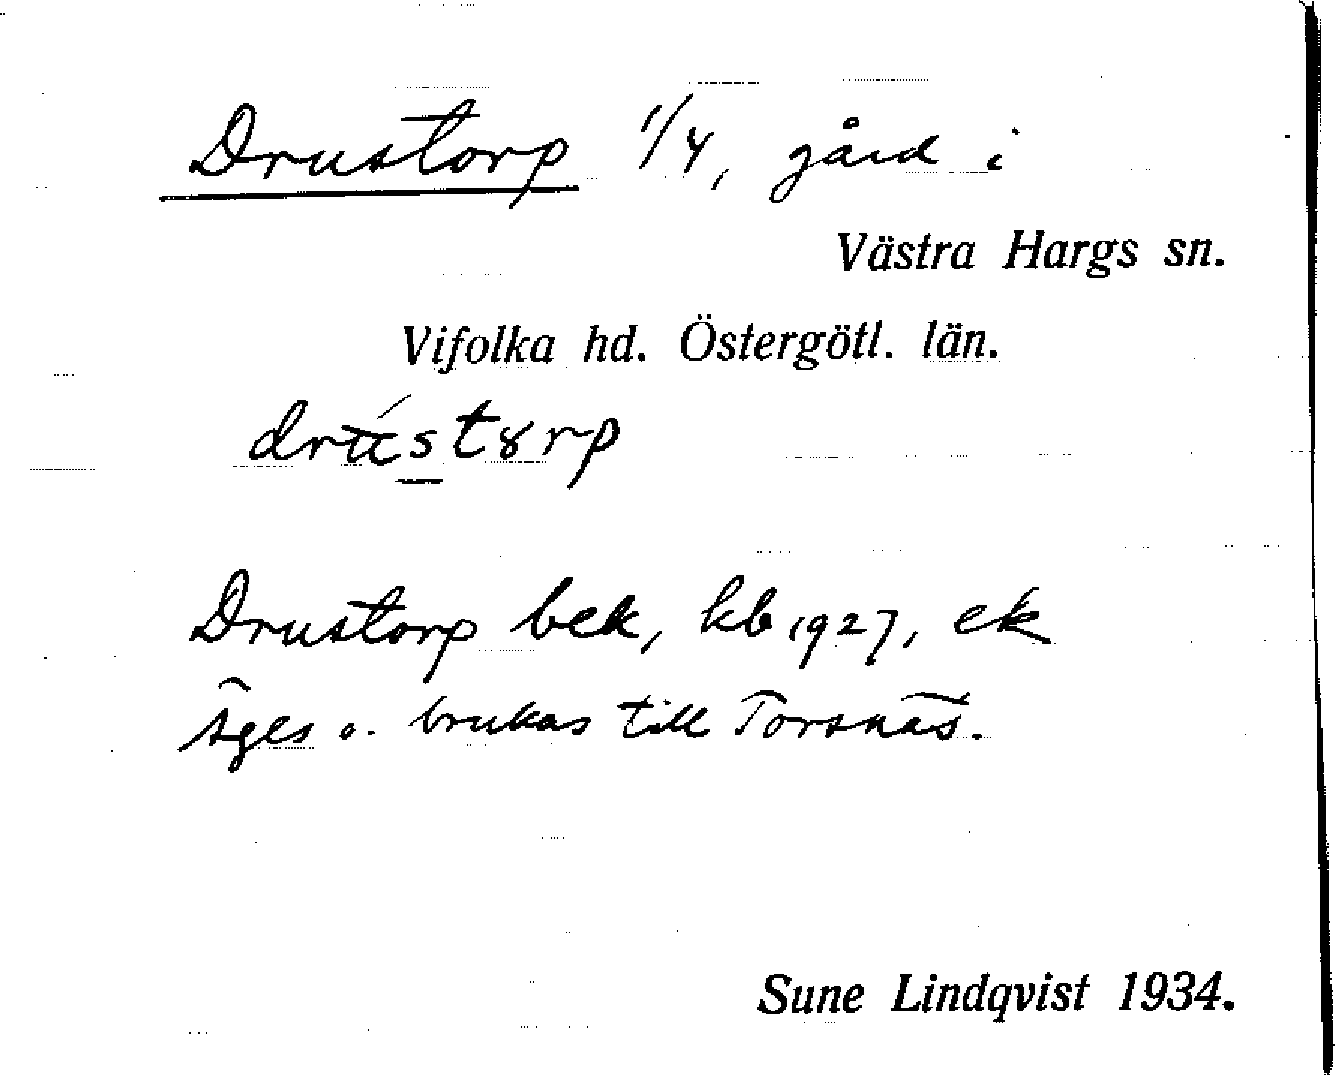 Drustorp 1/4, gård i
Västra Hargs sn.
Vifolka hd. Östergötl. län.
drústȣrp
Drustorp bek, kb 1927, ek
Äges o. brukas till Torsnäs.
Sune Lindqvist 1934.